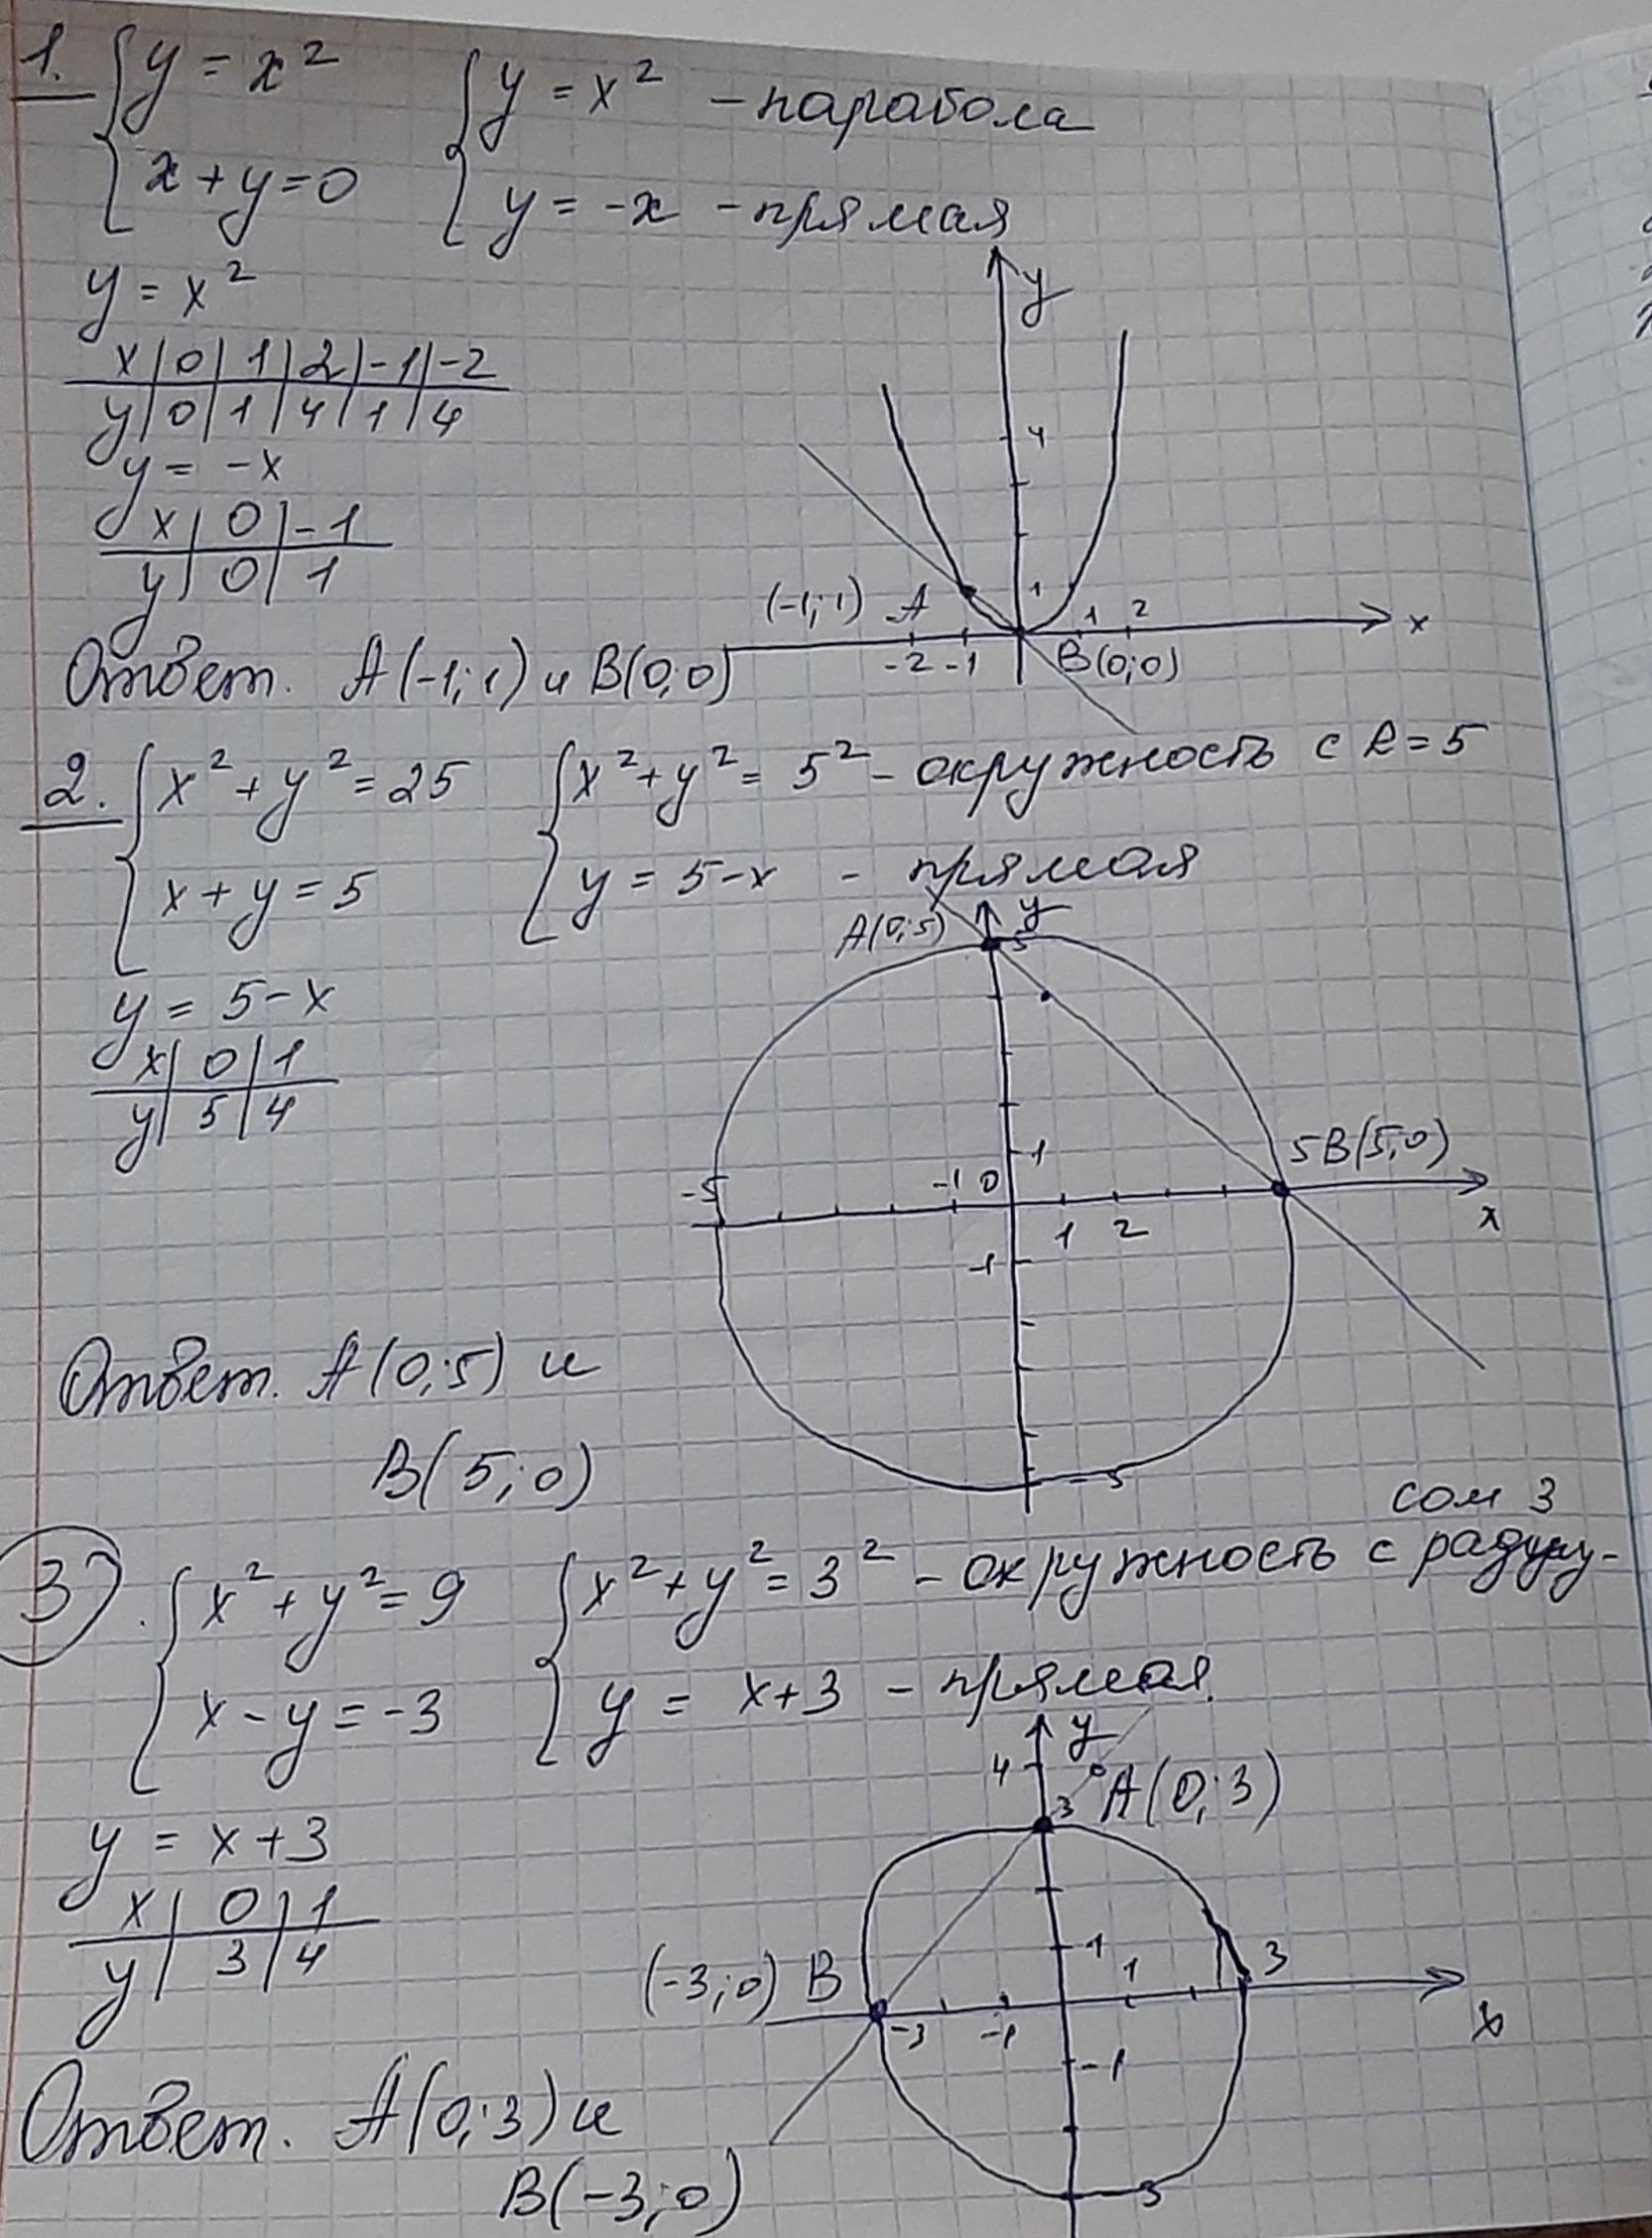 1. { y = x² { y = x² – парабола
x + y = 0 y = -x – прямая
y = x²
x | 0 | 1 | 2 | -1 | -2
y | 0 | 1 | 4 | 1 | 4
y = -x
x | 0 | -1
y | 0 | 1
y
4
1
(-1; 1) A
1 2
x
-2 -1 B(0; 0)
Ответ. A(-1; 1) и B(0; 0)
2. { x² + y² = 25 { x² + y² = 5² – окружность с R = 5
x + y = 5 y = 5 - x – прямая
y = 5 - x
x | 0 | 1
y | 5 | 4
A(0; 5) 5 y
1
5 B(5; 0)
-5 -1 0
1 2 x
-1
-5
Ответ. A(0; 5) и
B(5; 0)
3. { x² + y² = 9 { x² + y² = 3² – окружность с радиу-
сом 3
x - y = -3 y = x + 3 – прямая.
y = x + 3
x | 0 | 1
y | 3 | 4
y
4
3 A(0; 3)
1
1 3
(-3; 0) B
-3 -1 x
-1
-3
Ответ. A(0; 3) и
B(-3; 0)